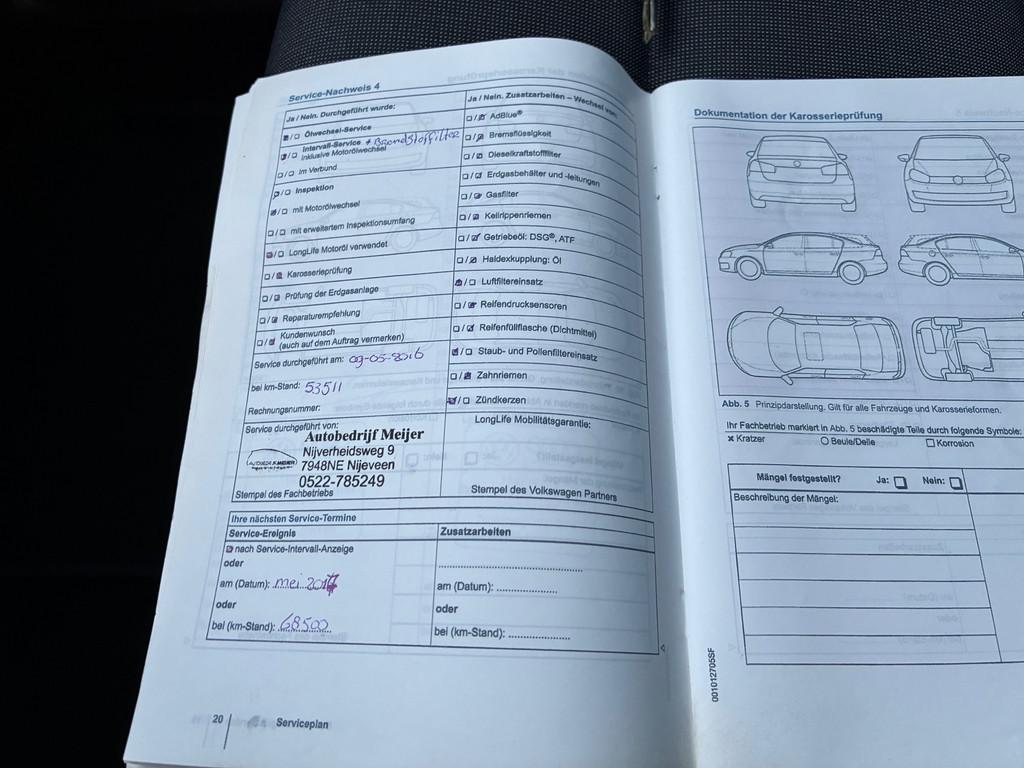 Service-Nachweis 4
Ja / Nein. Durchgeführt wurde:
Ölwechsel-Service
Intervall-Service + Brandstoffilter
Inklusive Motorölwechsel
Im Verbund
Inspektion
mit Motorölwechsel
mit erweitertem Inspektionsumfang
LongLife Motoröl verwendet
Karosserieprüfung
Prüfung der Erdgasanlage
Reparaturempfehlung
Kundenwunsch
(auch auf dem Auftrag vermerken)
Service durchgeführt am: 09-05-2016
bei km-Stand: 53511
Rechnungsnummer:
Service durchgeführt von:
Autobedrijf Meijer
Nijverheidsweg 9
7948NE Nijeveen
0522-785249
Stempel des Fachbetriebs
Ja / Nein. Zusatzarbeiten – Wechsel von:
AdBlue®
Bremsflüssigkeit
Dieselkraftstofffilter
Erdgasbehälter und -leitungen
Gasfilter
Keilrippenriemen
Getriebeöl: DSG®, ATF
Haldexkupplung: Öl
Luftfiltereinsatz
Reifendrucksensoren
Reifenfüllflasche (Dichtmittel)
Staub- und Pollenfiltereinsatz
Zahnriemen
Zündkerzen
LongLife Mobilitätsgarantie:
Stempel des Volkswagen Partners
Ihre nächsten Service-Termine
Service-Ereignis
nach Service-Intervall-Anzeige
oder
am (Datum): mei 2017
oder
bei (km-Stand): 68500
Zusatzarbeiten
am (Datum):
oder
bei (km-Stand):
20 Serviceplan
Dokumentation der Karosserieprüfung
Abb. 5 Prinzipdarstellung. Gilt für alle Fahrzeuge und Karosserieformen.
Ihr Fachbetrieb markiert in Abb. 5 beschädigte Teile durch folgende Symbole:
x Kratzer O Beule/Delle □ Korrosion
Mängel festgestellt? Ja: □ Nein: □
Beschreibung der Mängel:
001012705SF